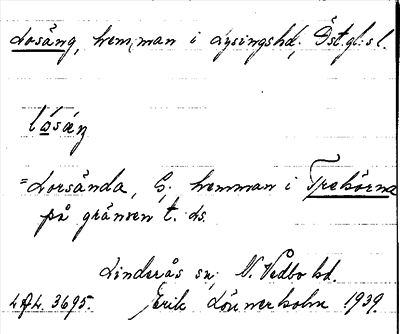 Losäng, hemman i Lysingshd, Östgl. sl.
låsäŋ
= Lorsända, G. hemman i Trehörna
på gränsen t. ds.
Linderås sn, N. Vedbo hd.
LAL. 3695. Erik Lönnerholm 1939.